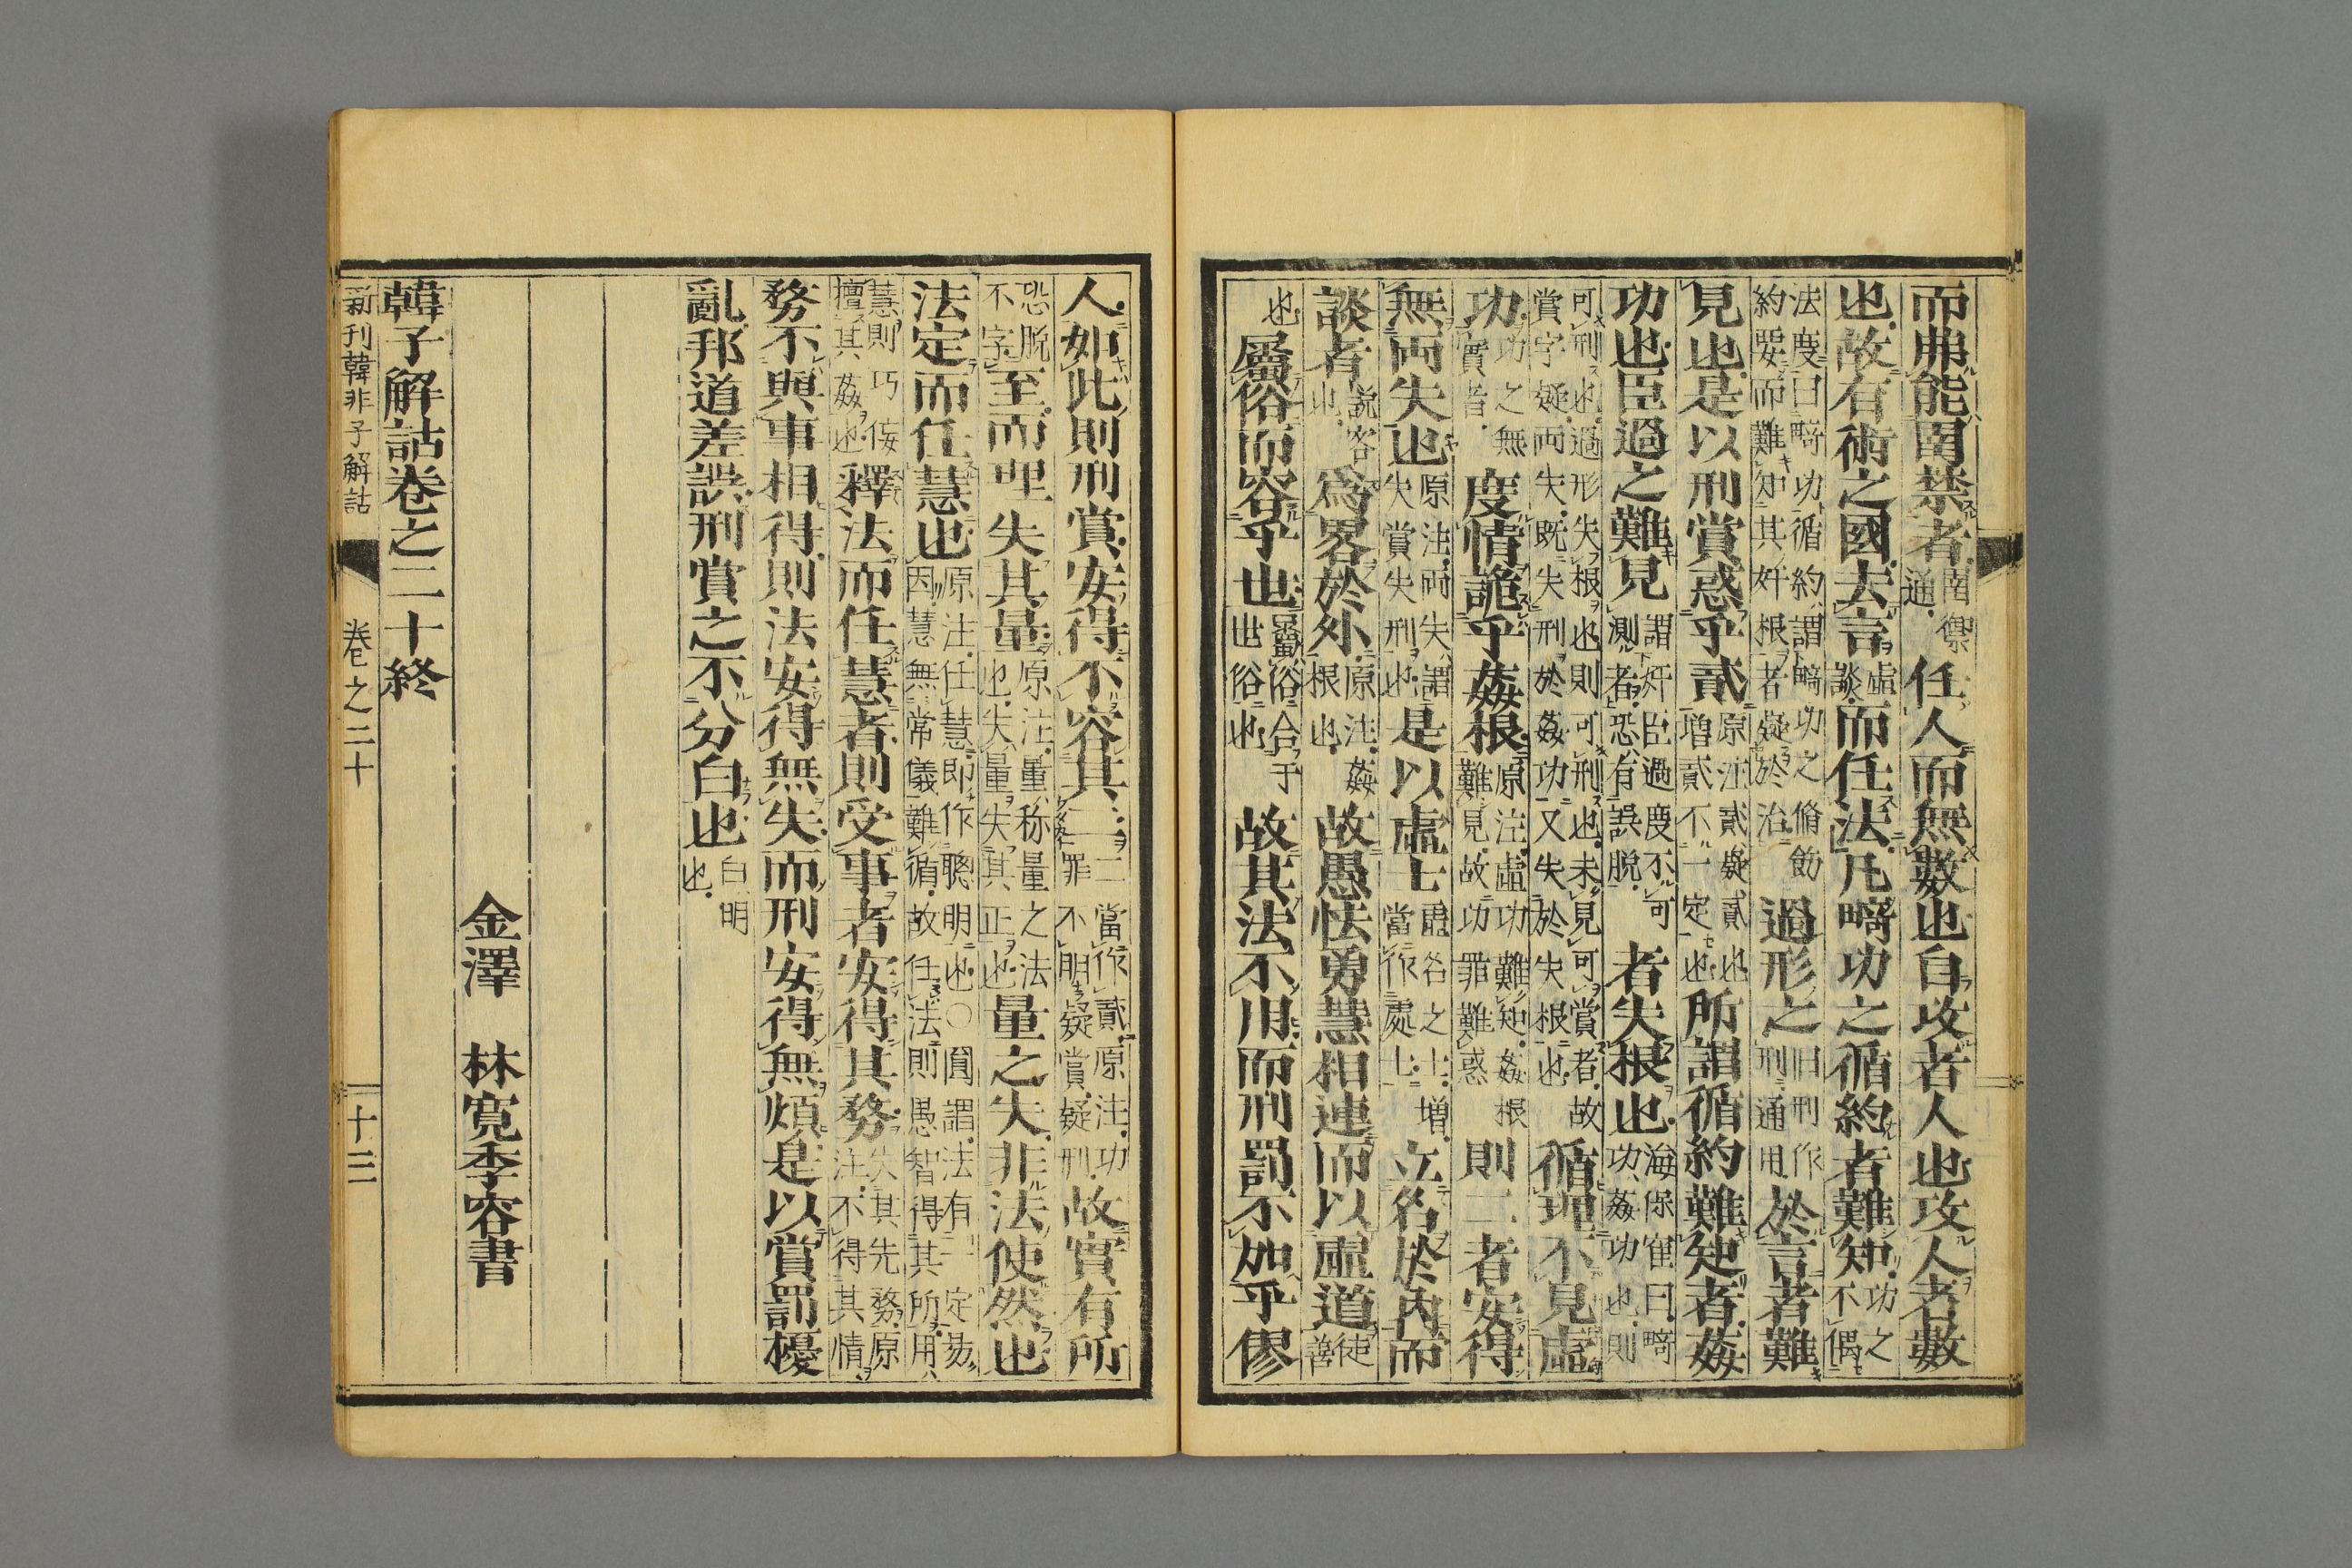 而弗能圉禁者圉禦通任人而無數也自攻者人也攻人者數
也故有術之國去言虛談而任法凡畸功之循約者難知功之不偶
法度曰畸功循約謂畸功之脩飭約要而難知其奸根者疑於治過形之旧刑作刑通用於言者難
見也是以刑賞惑乎貳原注貳疑貳也増貳不一定也所謂循約難知者姦
功也臣過之難見謂奸臣過度不可測者恐有誤脱者失根也海保窀曰畸功姦功也則
可刑也過形失根也則可刑也未見可賞者故賞字疑両失既失刑於姦功又失於失根也循理不見虛
功功之無實者度情詭乎姦根原注虛功難知姦根難見故功罪難惑則二者安得
無両失也原注両失謂失賞失刑也是以虛士虛名之士増當作處士立名於內而
談者説客也為畧於外原注姦根也故愚怯勇慧相連而以虛道徒善
也屬俗而容乎世屬俗合于世俗也故其法不用而刑罰不加乎僇
人如此則刑賞安得不容其二二當作貳原注功罪不明疑賞疑刑故實有所
恐脱不字至而理失其量原注量称量之法也失量失其正也量之失非法使然也
法定而任慧也原注任慧即作聰明也○圓謂法有一定易因慧無常儀難循故任法則愚智得其所用
慧則巧佞擅其姦也釋法而任慧者則受事者安得其務失其先務原注不得其情
務不與事相得則法安得無失而刑安得無煩是以賞罰擾
亂邦道差誤刑賞之不分白也白明也
金澤　林寛季容書
韓子解詁卷之二十終
新刊韓非子解詁　卷之二十　十三